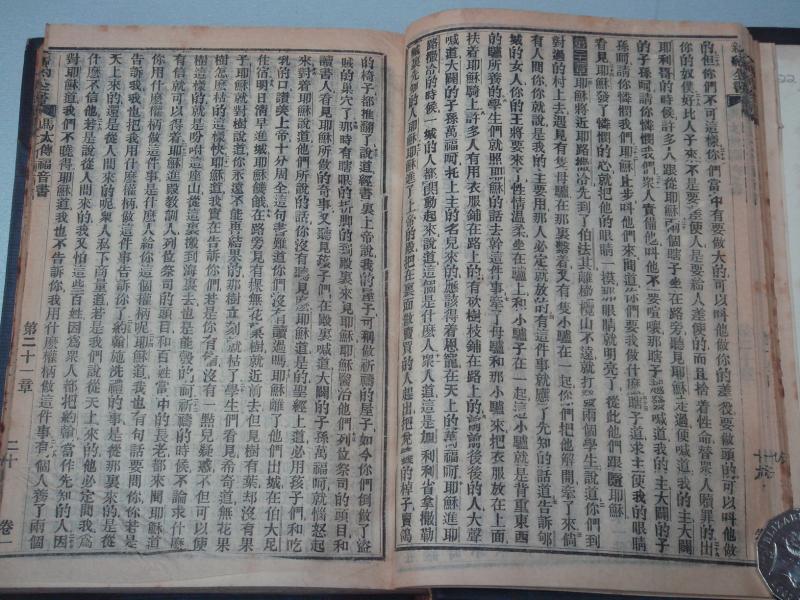 的但你們不可這樣你們當中有要做大的可以叫他做你的差役要做頭的可以叫他做
你的奴僕好比人子來不是要差使人是要給人差使的而且捨着性命替眾人贖罪的出
耶利哥的時候許多人跟從耶穌有兩個瞎子坐在路旁聽見耶穌走過便喊道我的主大闢
的子孫呵請你憐憫我們眾人責備他叫他不要喧嚷那瞎子越發喊道我的主大闢的子
孫呵請你憐憫我們耶穌站住叫他們來問道你們要我做什麼瞎子道求主使我的眼睛
看見耶穌發了憐憫的心就把他的眼睛一摸那眼睛就明亮了從此他們跟隨耶穌
耶穌將近耶路撒冷先到了伯法其離橄欖山不遠就打發兩個學生說道你們到
對過的村上去遇見有隻母驢在那裏繫着又有隻小驢在一起你們把他解開牽了來倘
有人問你你就說道是我的主要用那人必定就放的有這件事就應了先知的話道告訴郇
城的女人你的王將要來了性情溫柔坐在驢上和小驢子在一起這小驢就是背重東西
的驢所養的學生們就照耶穌的話去幹這件事牽了母驢和那小驢來把衣服放在上面
扶着耶穌騎上許多人有用衣服鋪在路上的有砍樹枝鋪在路上的前前後後的人大聲
喊道大闢的子孫萬福呵托上主的名兒來的應該得着恩寵在天上的萬福呵耶穌進耶
路撒冷的時候一城的人都閧動起來說道這個是什麼人眾人道這是加利利省拿撒勒
城裏先知的人耶穌耶穌進了上帝的殿把在裏面做賣買的人趕出把兌錢的棹子賣鴿
的椅子都推翻了說道經書裏上帝說我的屋子可稱做祈禱的屋子如今你們倒做了盜
賊的巢穴了那時有瞎眼的折脚的到殿裏來見耶穌耶穌醫治他們列位祭司的頭目和
讀書人看見耶穌所做的奇事又聽見孩子們在殿裏喊道大闢的子孫萬福呵就惱怒起
來對着耶穌說道他們所說的話你沒有聽見麼耶穌道是的聖經上道必用孩子們和吃
乳的口讚美上帝十分周全這句書難道你們沒有讀過嗎耶穌就離了他們出城在伯大尼
住宿明日清早進城耶穌餓在路旁見有棵無花果樹就近前去但見樹有葉却沒有果
子耶穌就對樹說道你永遠不能再結果的那樹立刻就枯了學生們看見希奇道無花果
樹怎麼枯的這樣快耶穌道我實在告訴你們若是你有信沒有一點兒疑惑不但可使這
樹這樣的就是吩咐這座山從這裏搬到海裏去也是能彀的而祈禱的時候不論求什麼
有信就可以得着耶穌進殿教訓人列位祭司的頭目和百姓當中的長老都來問耶穌道
你用什麼權柄做這件事是什麼人給你這個權柄呢耶穌道我也有句話要問你你若是
告訴我我也把我用什麼權柄做這件事告訴你了約翰施洗禮的事是從那裏來的是從
天上來的還是從人間來的呢眾人私下商量道若是我們說從天上來的他必定問我為
什麼不信他若是說從人間來的我又怕這些百姓因爲眾人都把約翰當作先知的人因
對耶穌道我們不曉得耶穌道我也不告訴你我用什麼權柄做這件事有個人養了兩個
馬太傳福音書
第二十一章
二十
卷一